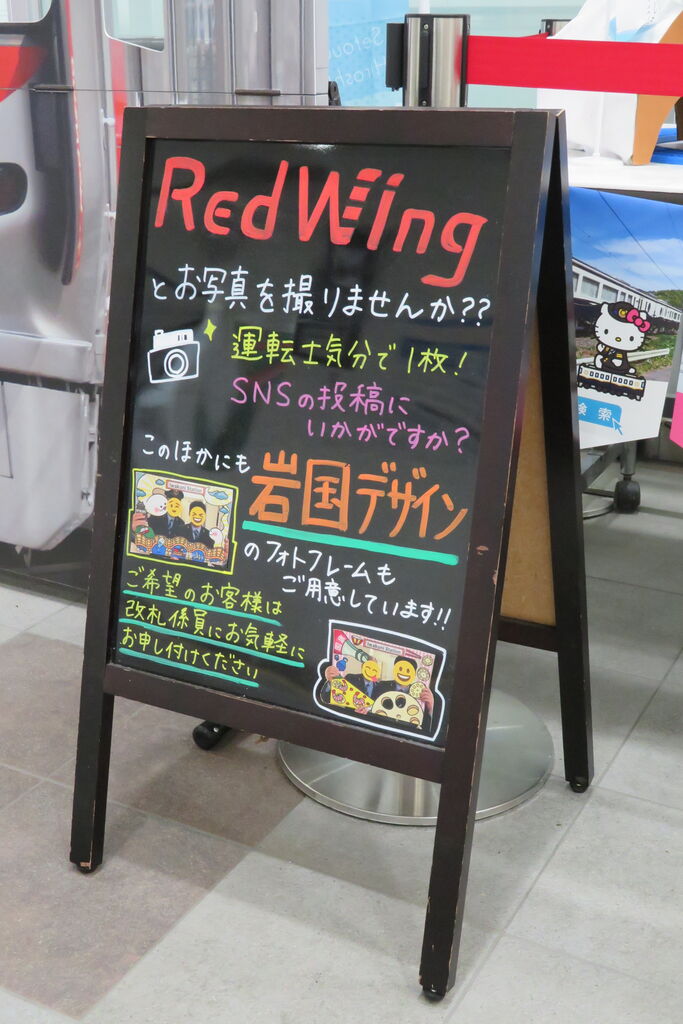 Setouchi
Hirosh
Red Wing
とお写真を撮りませんか??
運転士気分で1枚!
SNSの投稿に
いかがですか?
このほかにも
岩国デザイン
のフォトフレームも
ご用意しています!!
ご希望のお客様は
改札係員にお気軽に
お申し付けください
Iwakuni Station
Iwakuni Station
検索